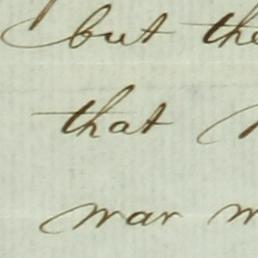 but the
that
war